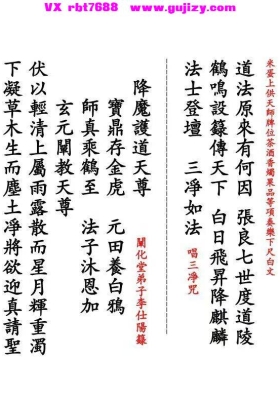 VX rbt7688 www.gujizy.com
米蛋上供天師牌位茶酒香燭果品等項奏樂下尺白文
道法原來有何因 張良七世度道陵
鶴鳴設籙傳天下 白日飛昇降麒麟
法士登壇 三净如法 唱三净咒
降魔護道天尊
寶鼎存金虎 元田養白鴉 闡化堂弟子李仕陽籙
師真乘鶴至 法子沐恩加
玄元闡教天尊
伏以輕清上屬雨露散而星月輝重濁
下凝草木生而塵土净將欲迎真請聖